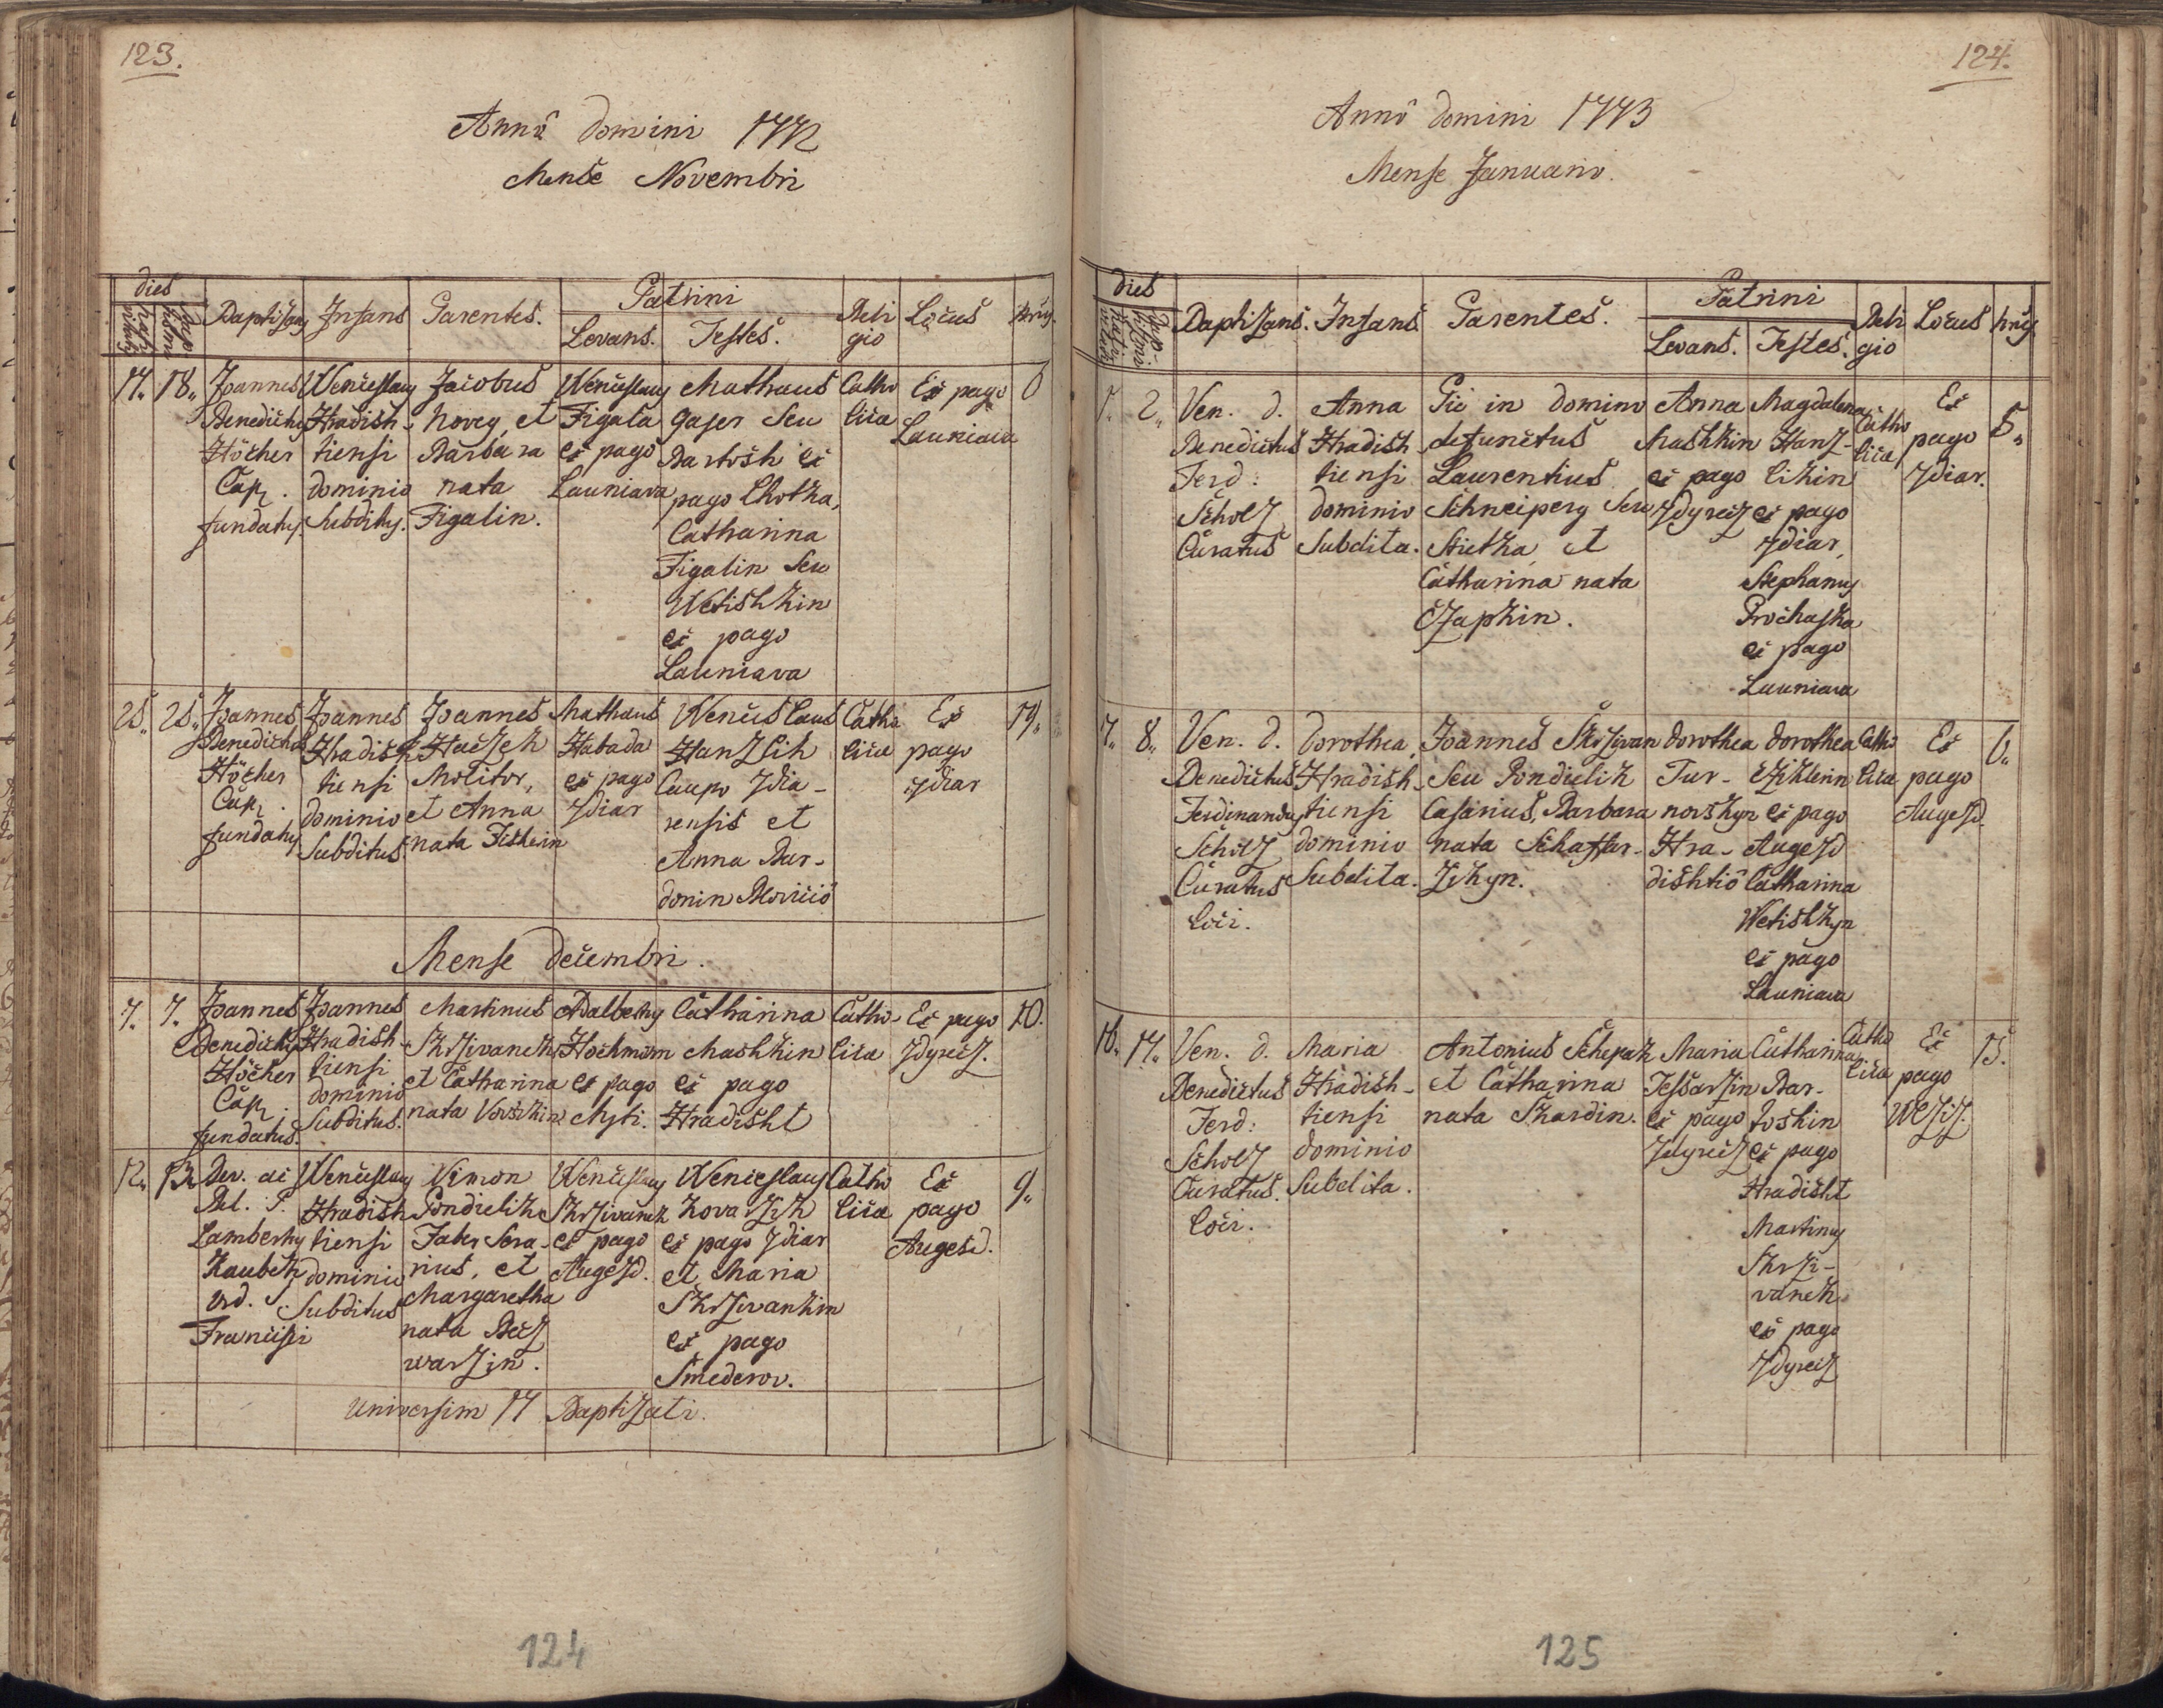 123.
Annô Domini 1772
Mense Novembri
dies
Baptizans Infans Parentes. Patrini Reli gio Locus
Levans. Testes.
17. 18. Joannes Benedictus Höcher Cap. fundatus.
Wenceslaus Hradish- tiensi dominio Subditus.
Jacobus Novey et Barbara nata Figalin.
Wenceslaus Figala ex pago Launiava
Mathaus Gajer Seu Bartosh ex pago Lhotka, Catharina Figalin Seu Wetishkin ex pago Launiava
Catho lica
Ex pago Launiava
6
25. 25. Joannes Benedictus Höcher Cap. fundatus
Joannes Hradish tiensi dominio Subditus
Joannes Haczek Molitor, et Anna nata Fisherin
Mathaus Habada ex pago Zdiar
Wenceslaus Hanzlik Caupo Zdia- rensis et Anna Bur- donin
Catho lica
Ex pago Zdiar
19.
Mense Decembri.
7. 7. Joannes Benedictus Höcher Cap. fundatus.
Joannes Hradish- tiensi dominio Subditus.
Martinus Skrzivanek et Catharina nata
Adalbertus Hochman ex pago
Catharina Mashkin ex pago Hradisht
Catho- lica
Ex pago Zdyrecz.
20.
12. 13. Rev. ac Rel. P. Lambertus Kaubek Ord. S. Francisci
Wenceslaus Hradish tiensi dominio Subditus
Simon Pondielik Faber Sera- rius, et Margaretha nata Becz warzin.
Wenceslaus Skrzivanek ex pago Augezd.
Wenceslaus Kovarzik ex pago Zdiar et Maria Skrzivankin ex pago Smederov.
Catho lica
Ex pago Augesd.
9.
Universim 17 Baptizati.
124
124.
Annô Domini 1773
Mense Januario.
dies
Baptizans. Infans. Parentes. Patrini Reli gio Locus
Levans. Testes.
1. 2. Ven. D. Benedictus Ferd: Scholz Curatus
Anna Hradish tiensi dominio Subdita.
Pie in Domino defunctus Laurentius Schneiperg Seu Stietka et Catharina nata Czapkin.
Anna Mashkin ex pago Zdyrecz
Magdalena Hanz- likin ex pago Zdiar, Stephanus Prochaska ex pago Launiava
Catho lica
Ex pago Zdiar.
5.
7. 8. Ven. D. Benedictus Ferdinandus Scholz Curatus Loci.
Dorothea Hradish- tiensi dominio Subdita.
Joannes Skrzivan Seu Pondielik Casarius, Barbara nata Schaffar- zikyn.
Dorothea Tur- novskyn Hra- dishtiô
Dorothea Cziklerin ex pago Augezd Catharina Wetishkyn ex pago Launiava
Catho lica
Ex pago Augezd.
6.
16. 17. Ven. D. Benedictus Ferd: Scholz Curatus. Loci.
Maria Hradish- tiensi dominio Subdita.
Antonius Schepak et Catharina nata Skardin.
Maria Tessarzin ex pago Zdyrecz
Catharina Bar- toshin ex pago Hradisht Martinus Skrzi- vanek ex pago Zdyrecz
Catho lica
Ex pago Wlziz.
15.
125